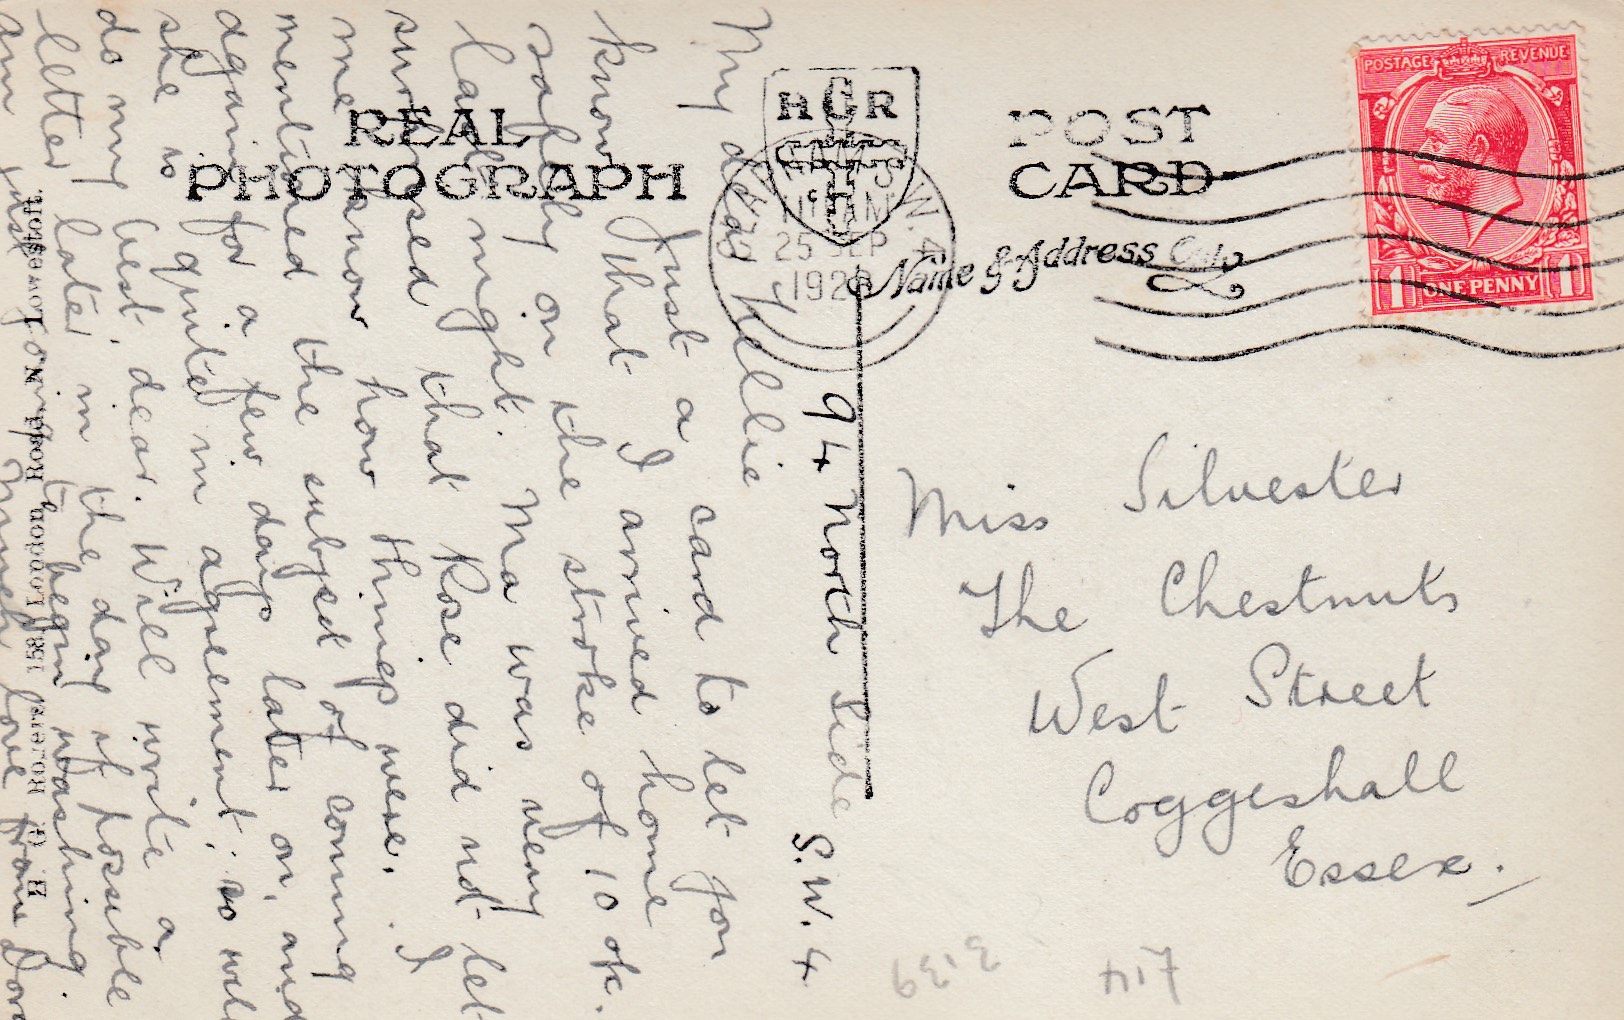 REAL
PHOTOGRAPH
H G R
POST
CARD
Name & Address Only
POSTAGE REVENUE
1 ONE PENNY 1
S.W.4
11 AM
25 SEP
192
94 North Side
S.W. 4
My dear Nellie
Just a card to let you
know that I arrived home
safely on the stroke of 10 ok.
last night. Ma was very
surprised that Rose did not let
me know how things were. I
mentioned the subject of coming
again for a few days later on, and
she is quite in agreement, so will
do my best dear. Will write a
letter later in the day if possible
am just going to begin washing
Much love from Dora
Miss Silvester
The Chestnuts
West Street
Coggeshall
Essex.
H. G. Rogers, 153, London Road, N. Lowestoft.